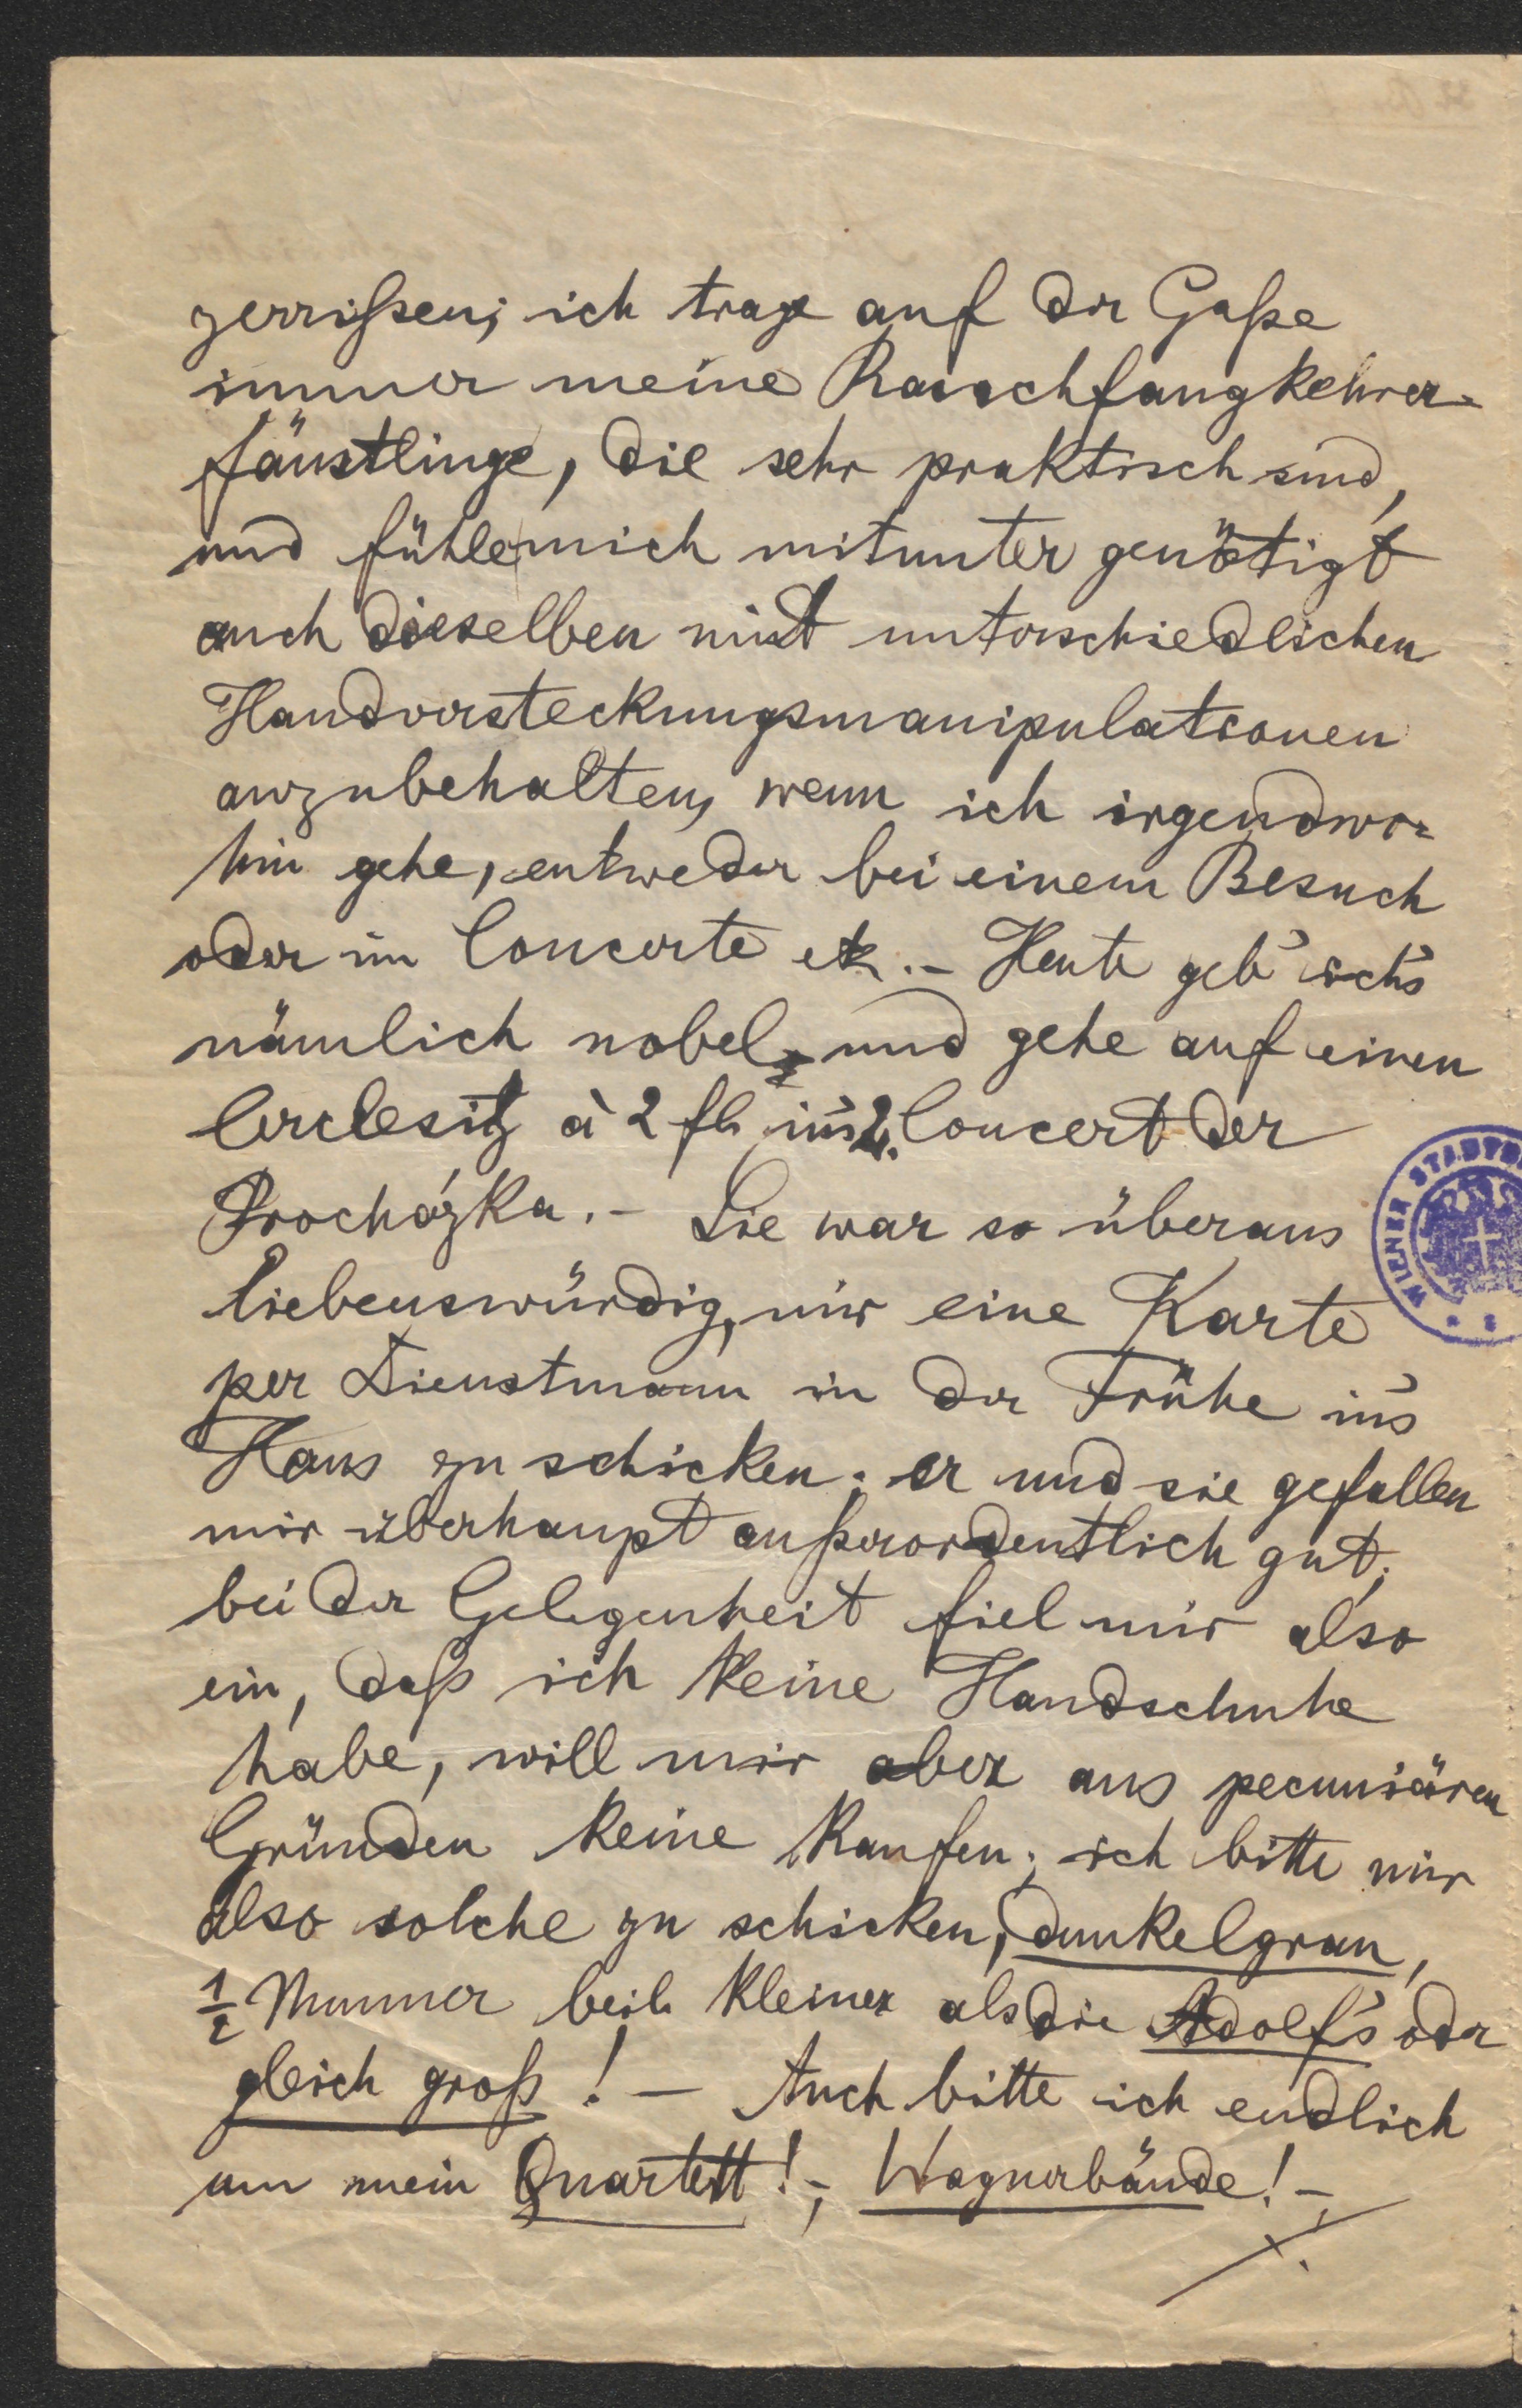 zerrißen; ich trage auf der Gaße
immer meine Rauchfangkehrer-
fäustlinge, die sehr praktisch sind,
und fühle mich mitunter genötigt
auch dieselben mit unterschiedlichen
Handversteckungsmanipulationen
anzubehalten, wenn ich irgendwo-
hin gehe, entweder bei einem Besuch
oder im Concerte etc. – Heute geb' ich's
nämlich nobel, und gehe auf einen
Cerclesitz à 2 fl. in's 2. Concert der
Procházka. – Sie war so überaus
liebenswürdig, mir eine Karte
per Dienstmann in der Frühe in's
Haus zu schicken; er und sie gefallen
mir überhaupt außerordentlich gut;
bei der Gelegenheit fiel mir also
ein, daß ich keine Handschuhe
habe, will mir aber aus pecuniären
Gründen keine kaufen; ich bitte mir
also solche zu schicken, dunkelgrau,
1/2 Nummer beil. kleiner als die Adolf's oder
gleich groß! – Auch bitte ich endlich
um mein Quartett! –, Wagnerbände! –,
WIENER STADTB